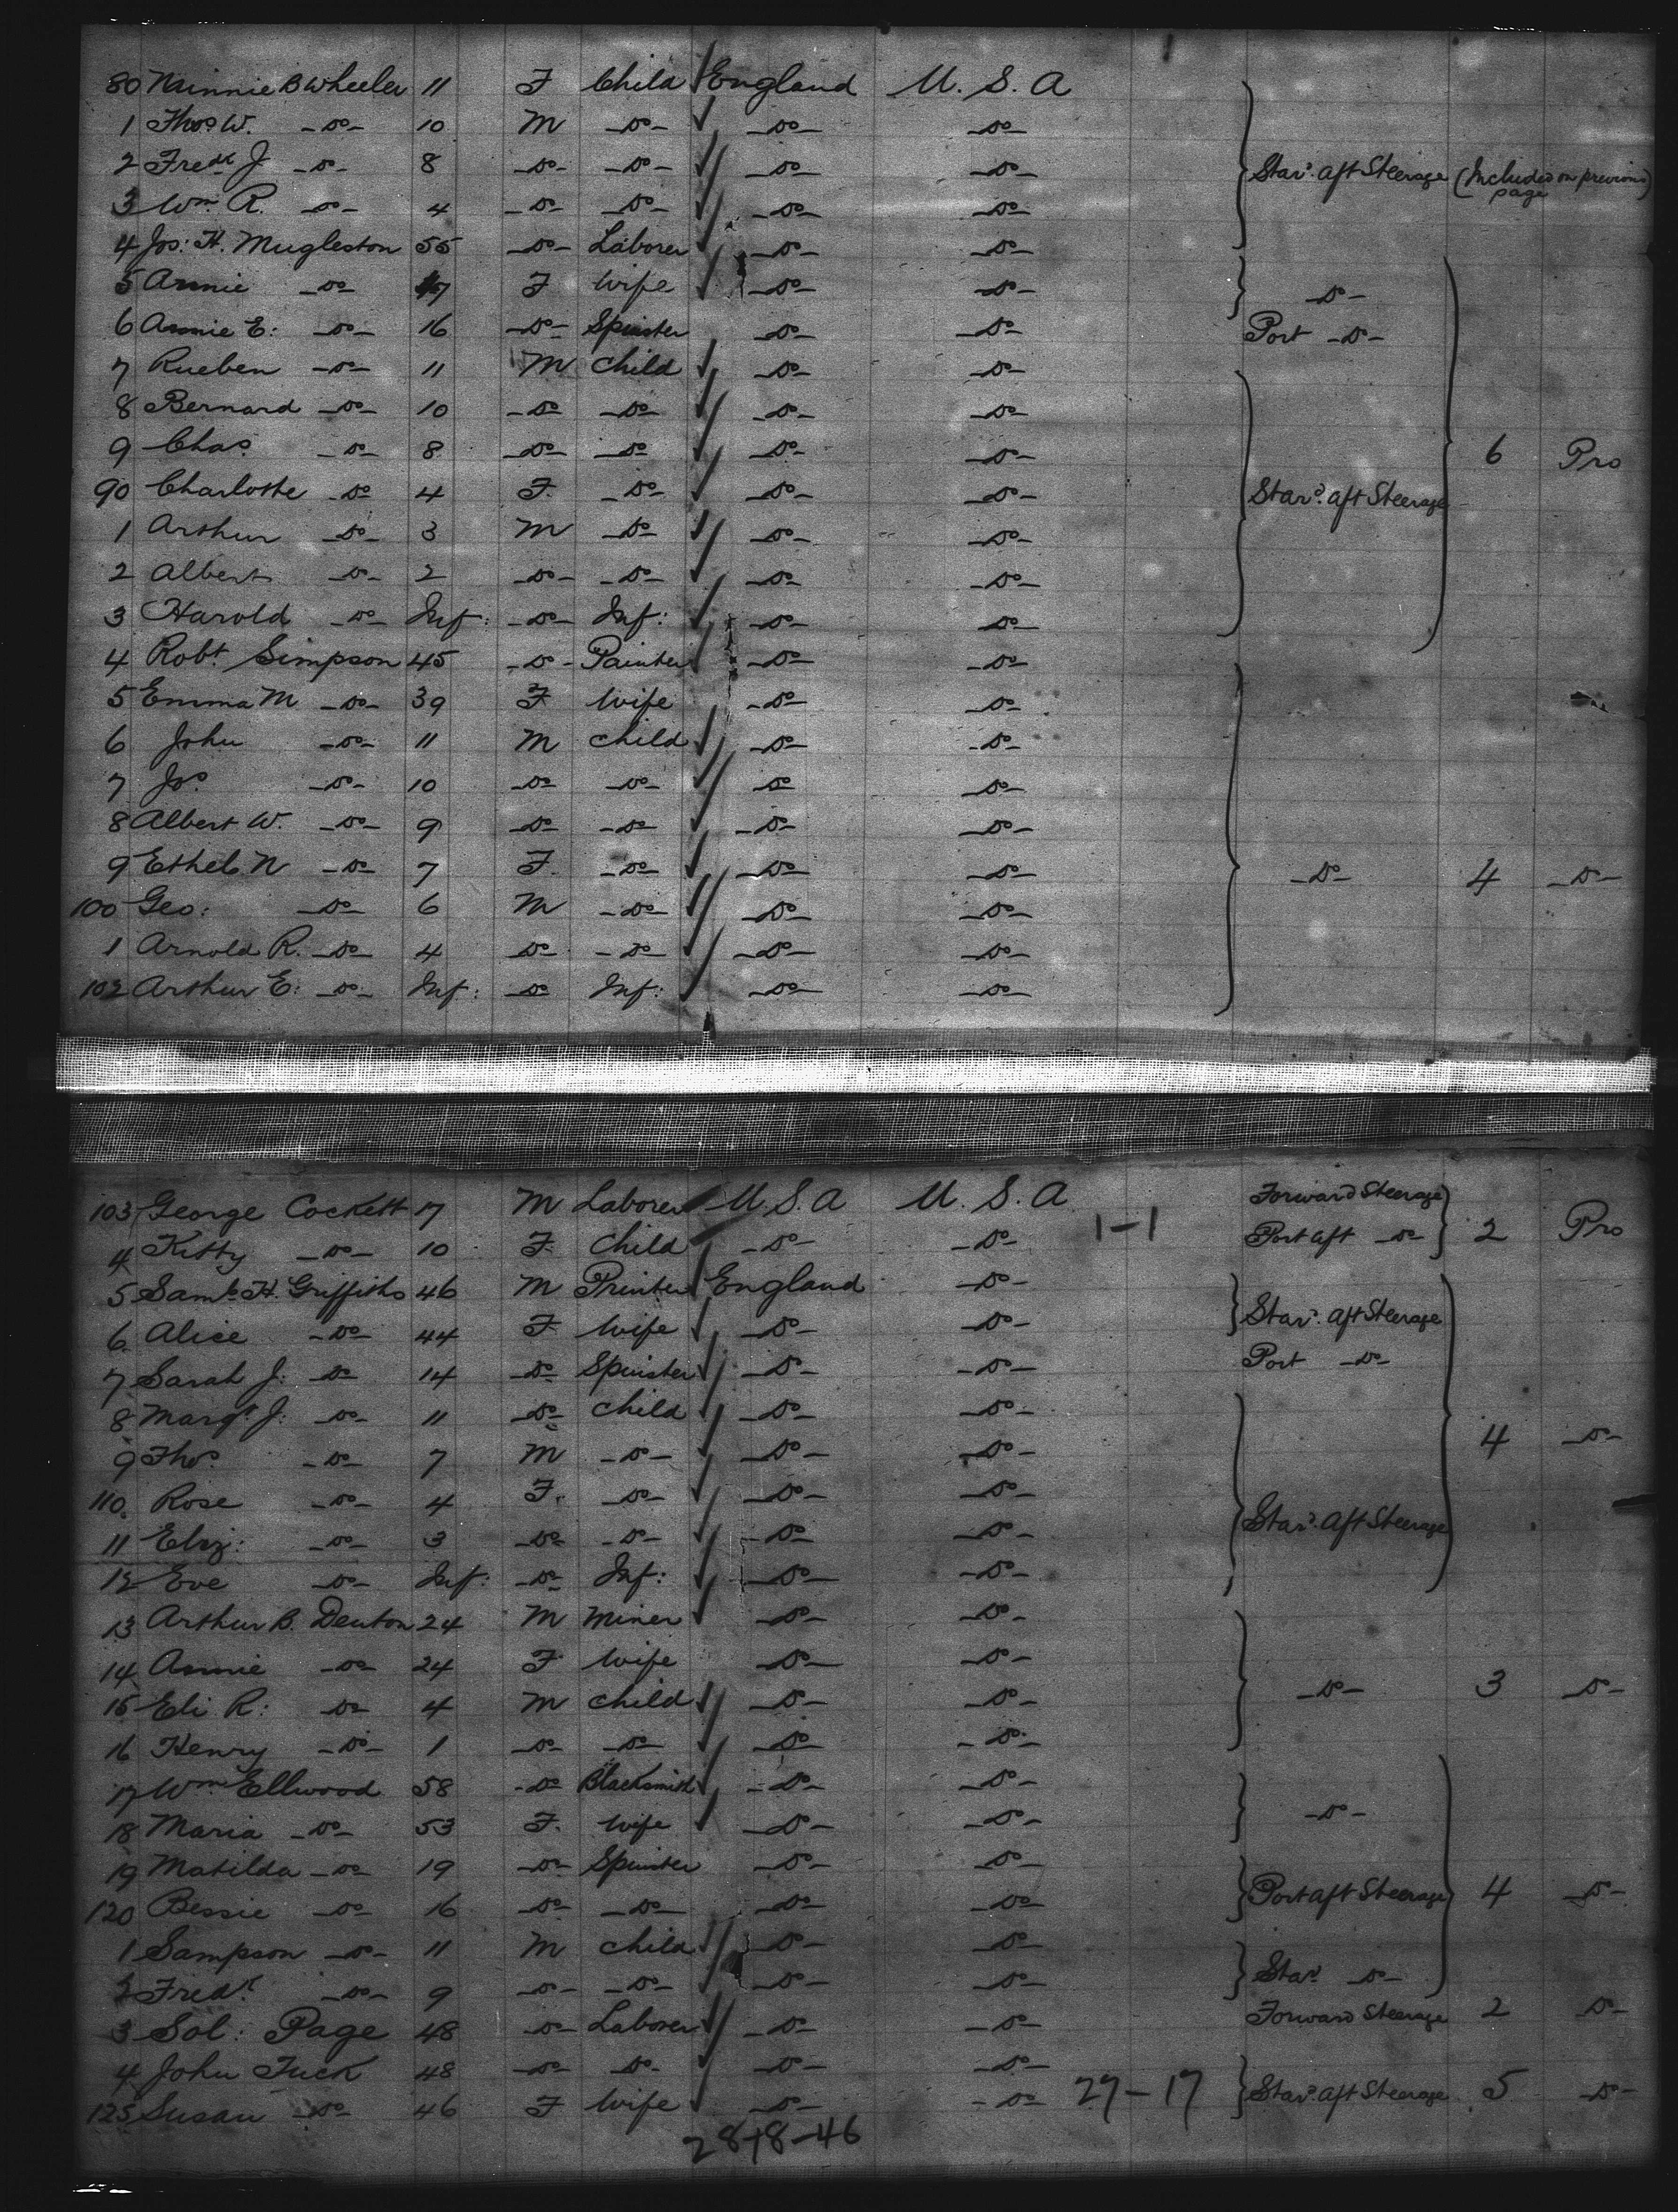 80 Minnie B Wheeler 11 F Child England U. S. A
1 Thos W. -do- 10 M -do- -do- -do-
2 Fredk J -do- 8 -do- -do- -do- -do- Star'd. aft Steerage (Included on previous page)
3 Wm R. -do- 4 -do- -do- -do- -do-
4 Jos: H. Mugleston 55 -do- Laborer -do- -do-
5 Annie -do- 47 F Wife -do- -do- -do-
6 Annie E: -do- 16 -do- Spinster -do- -do- Port -do-
7 Rueben -do- 11 M Child -do- -do-
8 Bernard -do- 10 -do- -do- -do- -do-
9 Chas -do- 8 -do- -do- -do- -do- 6 Pro
90 Charlotte -do- 4 F. -do- -do- -do- Star'd. aft Steerage
1 Arthur -do- 3 M -do- -do- -do-
2 Albert -do- 2 -do- -do- -do- -do-
3 Harold -do- Inf: -do- Inf: -do- -do-
4 Robt Simpson 45 -do- Painter -do- -do-
5 Emma M -do- 39 F Wife -do- -do-
6 John -do- 11 M Child -do- -do-
7 Jos -do- 10 -do- -do- -do- -do-
8 Albert W. -do- 9 -do- -do- -do- -do-
9 Ethel N -do- 7 F. -do- -do- -do- -do- 4 -do-
100 Geo: -do- 6 M -do- -do- -do-
1 Arnold R. -do- 4 -do- -do- -do- -do-
102 Arthur E: -do- Inf: -do- Inf: -do- -do-
103 George Cockett 17 M Laborer U. S. A U. S. A 1-1 Forward Steerage 2 Pro
4 Kitty -do- 10 F. Child -do- -do- Port aft -do-
5 Saml H. Griffiths 46 M Printer England -do-
6 Alice -do- 44 F Wife -do- -do- Star'd. aft Steerage
7 Sarah J: -do- 14 -do- Spinster -do- -do- Port -do-
8 Margt J: -do- 11 -do- Child -do- -do-
9 Thos -do- 7 M -do- -do- -do- 4 -do-
110 Rose -do- 4 F. -do- -do- -do-
11 Eliz: -do- 3 -do- -do- -do- -do- Star'd. aft Steerage
12 Eve -do- Inf: -do- Inf: -do- -do-
13 Arthur B. Denton 24 M Miner -do- -do-
14 Annie -do- 24 F Wife -do- -do-
15 Eli R: -do- 4 M Child -do- -do- -do- 3 -do-
16 Henry -do- 1 -do- -do- -do- -do-
17 Wm Ellwood 58 -do- Blacksmith -do- -do-
18 Maria -do- 53 F. Wife -do- -do- -do-
19 Matilda -do- 19 -do- Spinster -do- -do-
120 Bessie -do- 16 -do- -do- -do- -do- Port aft Steerage 4 -do-
1 Sampson -do- 11 M Child -do- -do-
2 Fredk -do- 9 -do- -do- -do- -do- Star'd -do-
3 Sol: Page 48 -do- Laborer -do- -do- Forward Steerage 2 -do-
4 John Tuck 48 -do- -do- -do- -do-
125 Susan -do- 46 F Wife -do- -do- 27-17 Star'd. aft Steerage 5 -do-
28+8-46